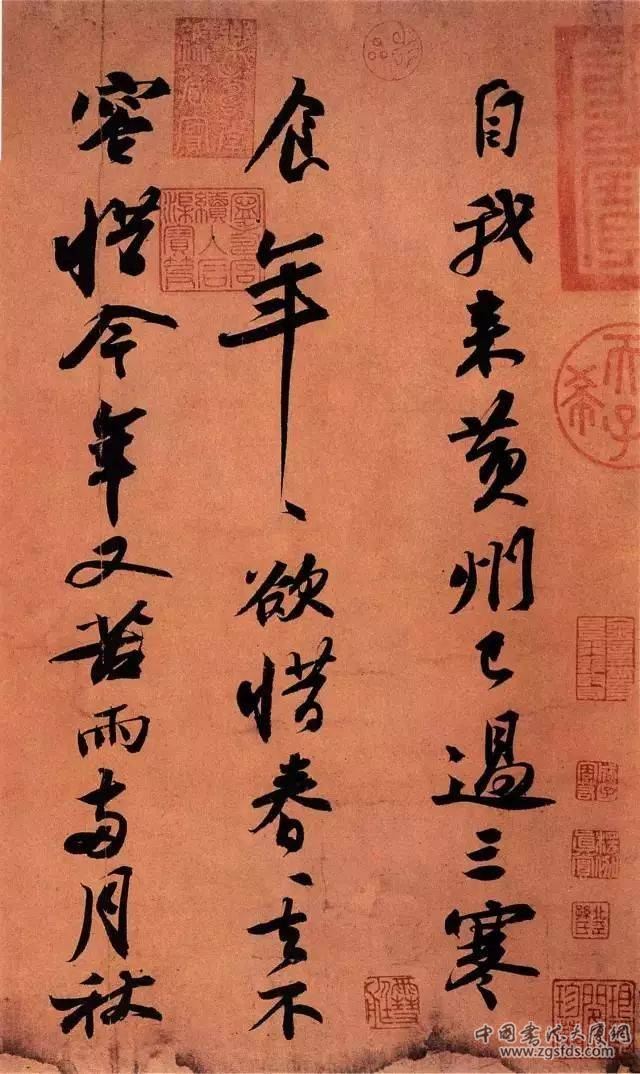 自我来黄州已過三寒
食年〻欲惜春〻去不
容惜今年又苦雨兩月秋
天子
希
中国书法大厦网
www.zgsfds.com